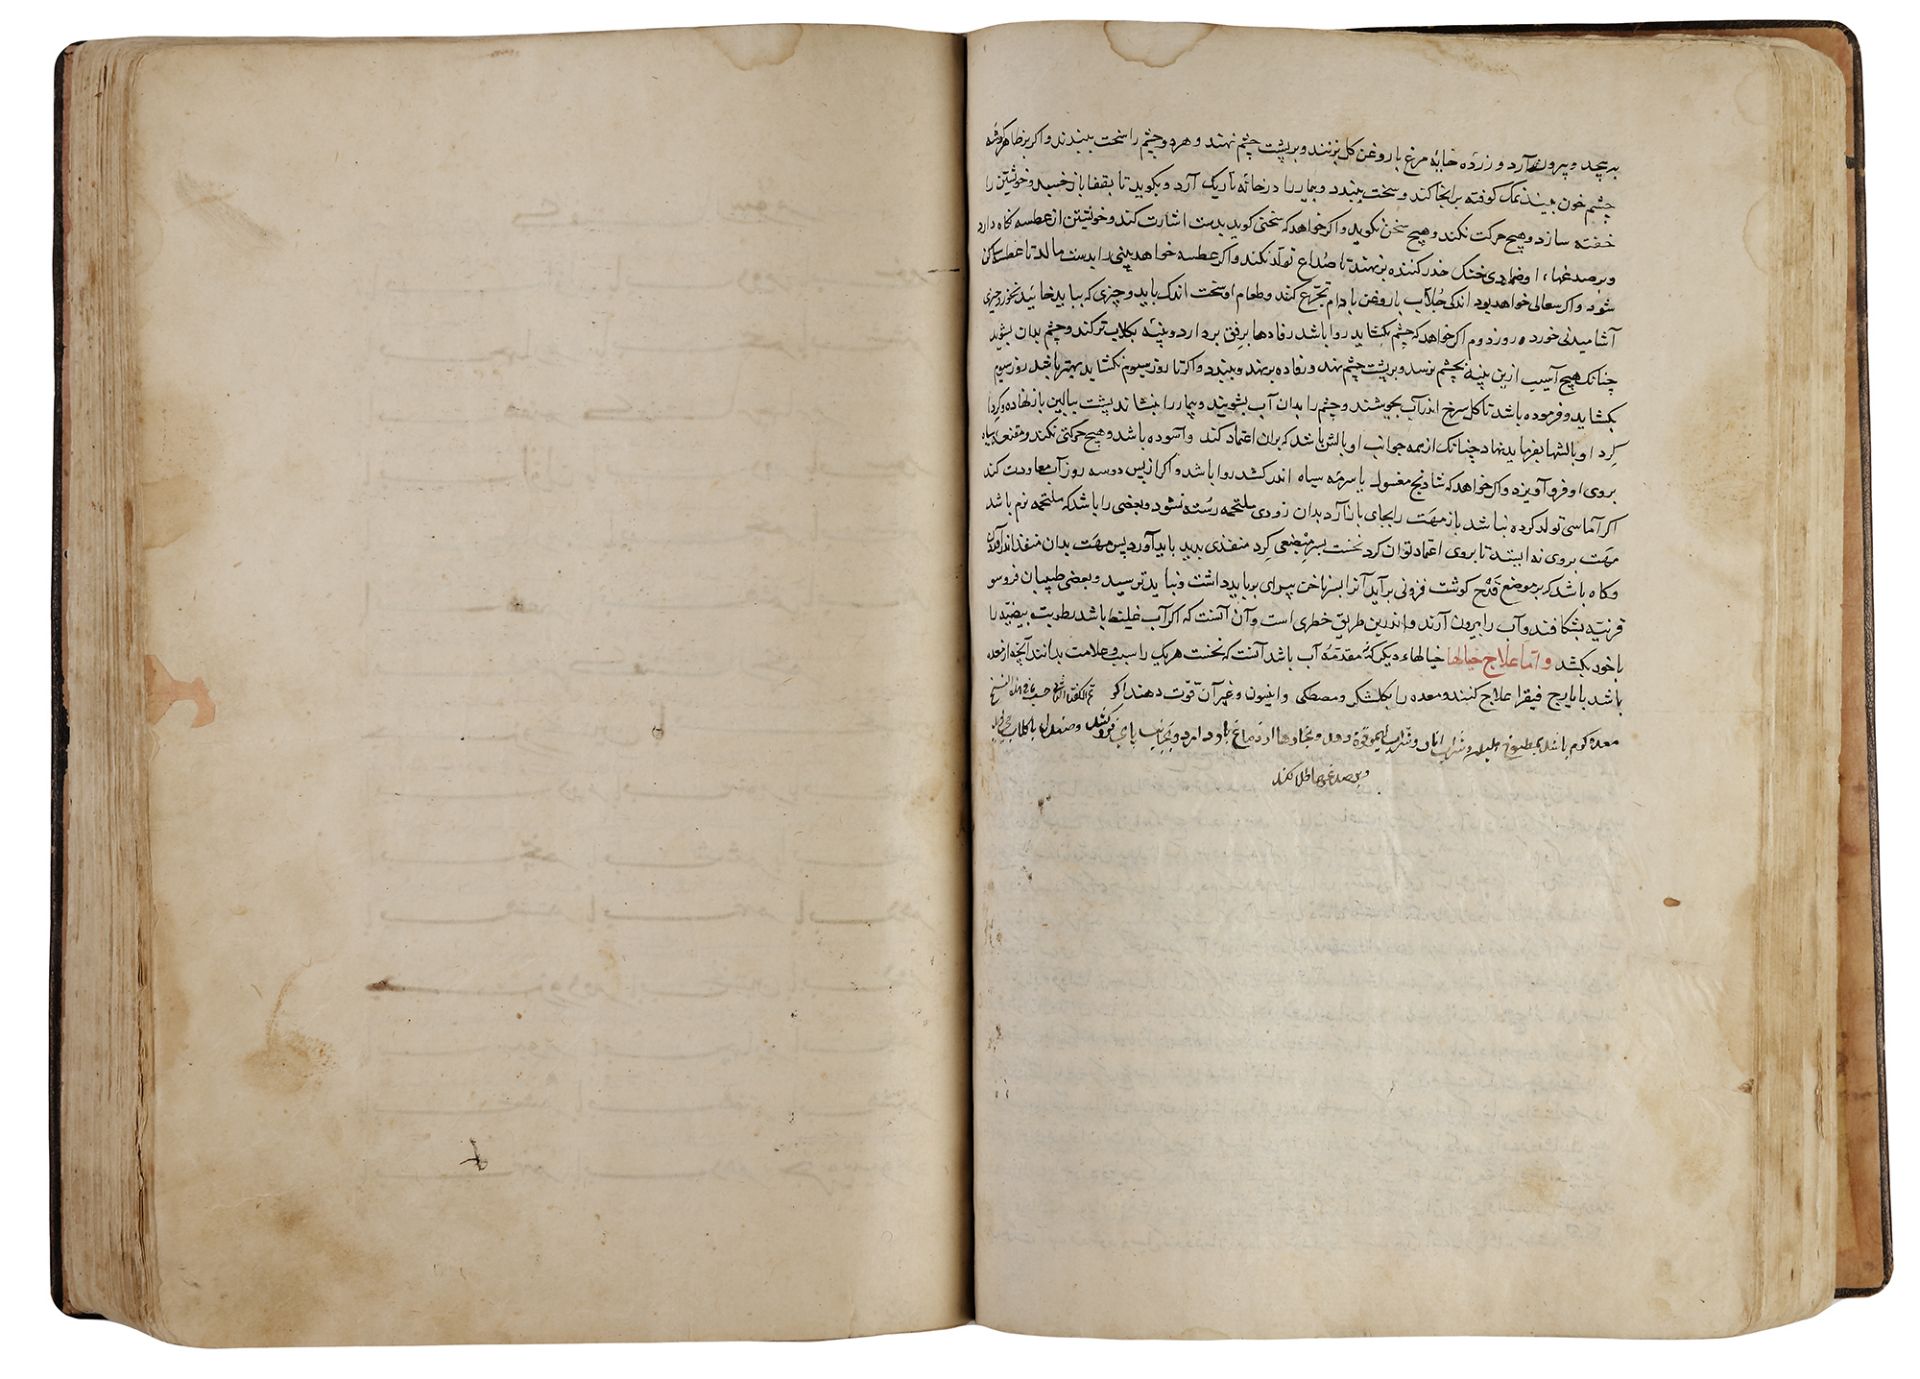 بپیچد و بیرون آرد و زرده خایهٔ مرغ با روغن کل بزنند و بر پشت چشم نهند و هر دو چشم را سخت ببندند و اکر بر ظاهر کوشه
چشم خون بیند نمک کوفته برانجا کند و سخت ببندد و بیمار را در خانه تاریک آرد و بکوید تا بقفا باز خسبد و خویشتن را
خفته سازد و هیچ حرکت نکند و هیچ سخن نکوید و اکر خواهد که سخنی کوید بدست اشارت کند و خویشتن از عطسه نکاه دارد
و بر صدغهاء او ضمادی خنک خدر کننده برنهند تا صُداع تولد نکند و اکر عطسه خواهد بینی را بدست مالد تا عطسه ساکن
شود و اکر سعالی خواهد بود اندکی جُلاب با روغن بادام تجرّع کند و طعام او سخت اندک باید و چیزی که بباید خائید نخورد چیزی
آشامیدنی خورد ه روز دوم اکر خواهد که چشم بکشاید روا باشد رفادها برفق بردارد و پنبه بکلاب تر کند و چشم بدان بشوید
چنانک هیچ آسیب ازین پنبه بچشم نرسد و بر پشت چشم نهد و رفاده برنهد و ببندد و اکر تا روز سیوم نکشاید بهتر باشد روز سیوم
بکشاید و فرموده باشد تا کل سرخ اندر آب بجوشند و چشم را بدان آب بشویند و بیمار را بنشاند پشت ببالین باز نهاده و کردا
کِرد او بالشها بفرماید نهاد چنانک از همه جوانب او بالش باشد که بران اعتماد کند و آسوده باشد و هیچ حرکتی نکند و مقنعه سیاه
بروی او فرو آویزد و اکر خواهد که شادنج مغسول یا سرمه سیاه اندر کشد روا باشد و اکر از پس دو سه روز آب معاودت کند
اکر آماسی تولد کرده نباشد باز مهَت را بجای باز آرد بدان زودی ملتحمه رُسته نشود و بعضی را باشد که ملتحمه نرم باشد
مهَت بروی نه ایستد تا بروی اعتماد توان کرد نخست بسر مِبضعی کِرد منفذی پدید باید آورد پس مهَت بدان منفذ اندر آوردن
و کاه باشد که بر موضع قَدْح کوشت فزونی برآید آنرا بسر ناخن پیرای برباید داشت و نباید ترسید و بعضی طبیبان فروسو
قرنیه بشکافند و آب را بیرون آرند و اندرین طریق خطری است و آن آنست که اکر آب غلیظ باشد رطوبت بیضیّه را
با خود بکشد و امّا علاج خیالها خیالهاء دیکر که مقدّمهٔ آب باشد آنست که نخست هر یک را سبب و علامت بدانند آنچه از معده
باشد بایارج فیقرا علاج کنند و معده را بکلشکر و مصطکی و انیسون و غیر آن قوّت دهند اکر
معده کرم باشد بمطبوخ هلیله و شراب انار و شراب لیمو قوة دهد و بخارها از دماغ باز دارد و صندل با کلاب
و بر صدغها طلا کنند